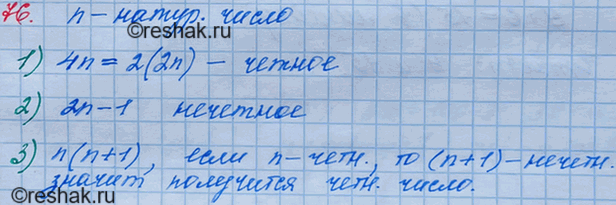 76. n - натур. число
1) 4n = 2(2n) - четное
2) 2n-1 нечетное
3) n(n+1), если n - четн., то (n+1) - нечетн.
значит получится четн. число.
©reshak.ru
©reshak.ru
©reshak.ru